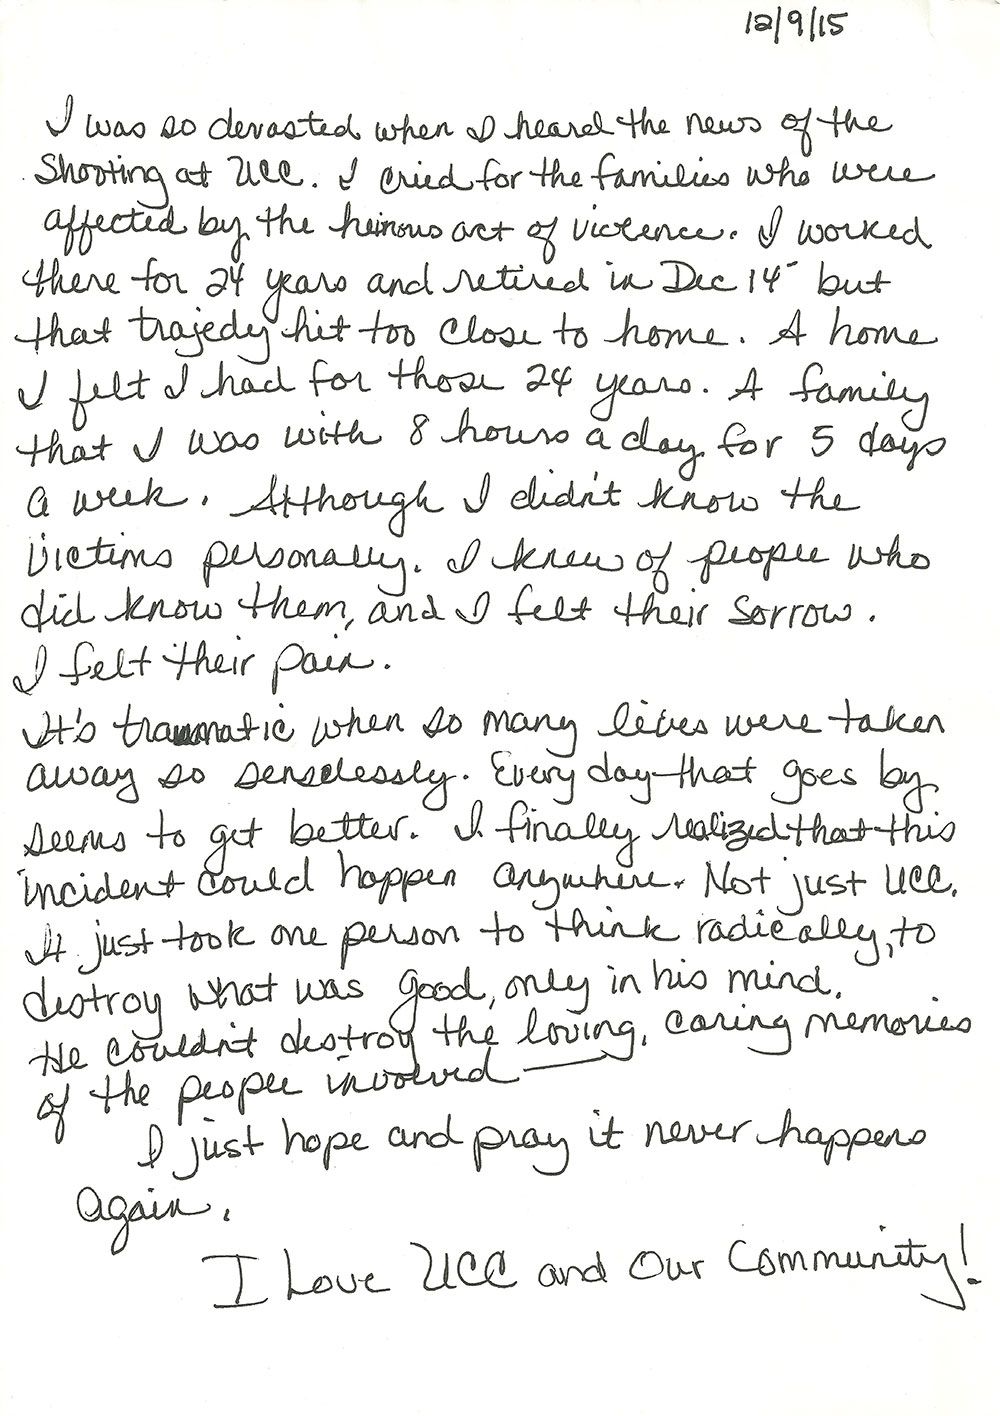 12/9/15
I was so devasted when I heard the news of the
Shooting at UCC. I cried for the families who were
affected by the heinous act of violence. I worked
there for 24 years and retired in Dec 14 but
that trajedy hit too close to home. A home
I felt I had for those 24 years. A family
that I was with 8 hours a day for 5 days
a week. Although I didn't know the
victims personally. I knew of people who
did know them, and I felt their sorrow.
I felt their pain.
It's traumatic when so many lives were taken
away so senselessly. Every day that goes by
seems to get better. I finally realized that this
incident could happen anywhere. Not just UCC.
It just took one person to think radically, to
destroy what was good, only in his mind.
He couldn't destroy the loving, caring memories
of the people involved —
I just hope and pray it never happens
again.
I Love UCC and Our Community!